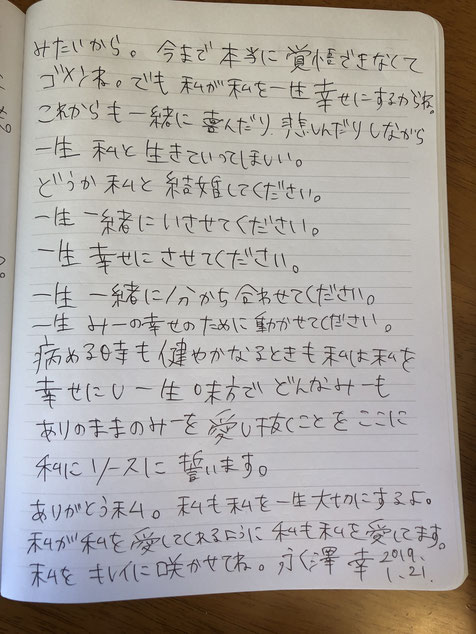 みたいから。今まで本当に覚悟できなくて
ゴメンね。でも私が私を一生幸せにするからね。
これからも一緒に喜んだり悲しんだりしながら
一生私と生きていってほしい。
どうか私と結婚してください。
一生一緒にいさせてください。
一生幸せにさせてください。
一生一緒に分かち合わせてください。
一生みーの幸せのために動かせてください。
病める時も健やかなるときも私は私を
幸せにし一生味方でどんなみーも
ありのままのみーを愛し抜くことをここに
私にソースに誓います。
ありがとう私。私も私を一生大切にするよ。
私が私を愛してくれるように私も私を愛してます。
私をキレイに咲かせてね。永澤 幸 2019.
1.21.